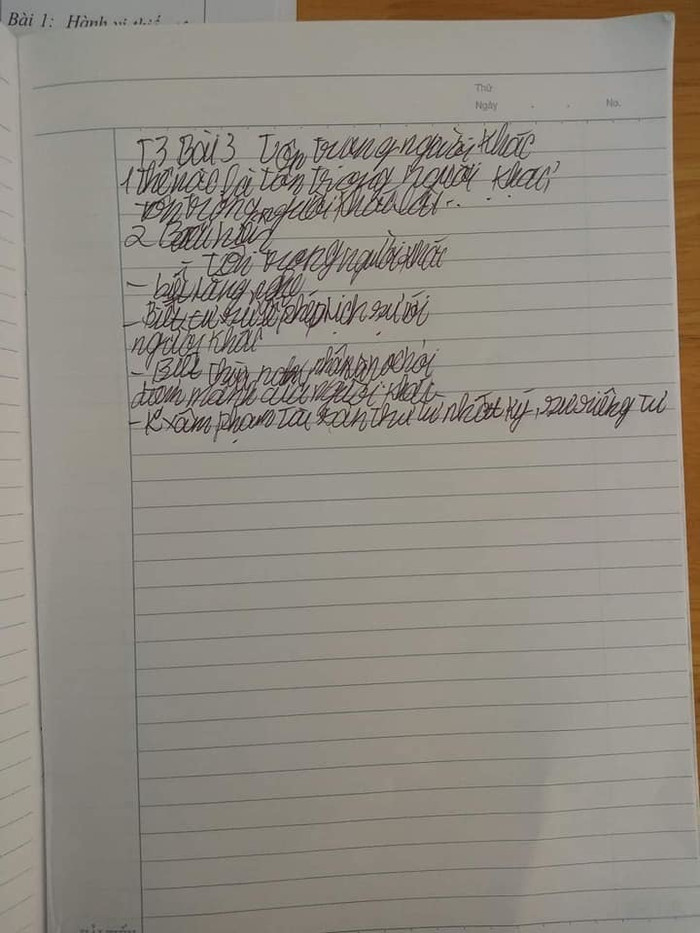 Bài 1: Hành vi
Thứ
Ngày . . No.
T3 Bài 3 Tôn trọng người khác
1 thế nào là tôn trọng người khác
tôn trọng người khác là . . . .
2
- tôn trọng người khác
- biết lắng nghe
- Biết cư xử lễ phép lịch sự với
người khác
- Biết thừa
điểm mạnh của người khác
- K xâm phạm tài sản thư từ nhật ký, sự riêng tư